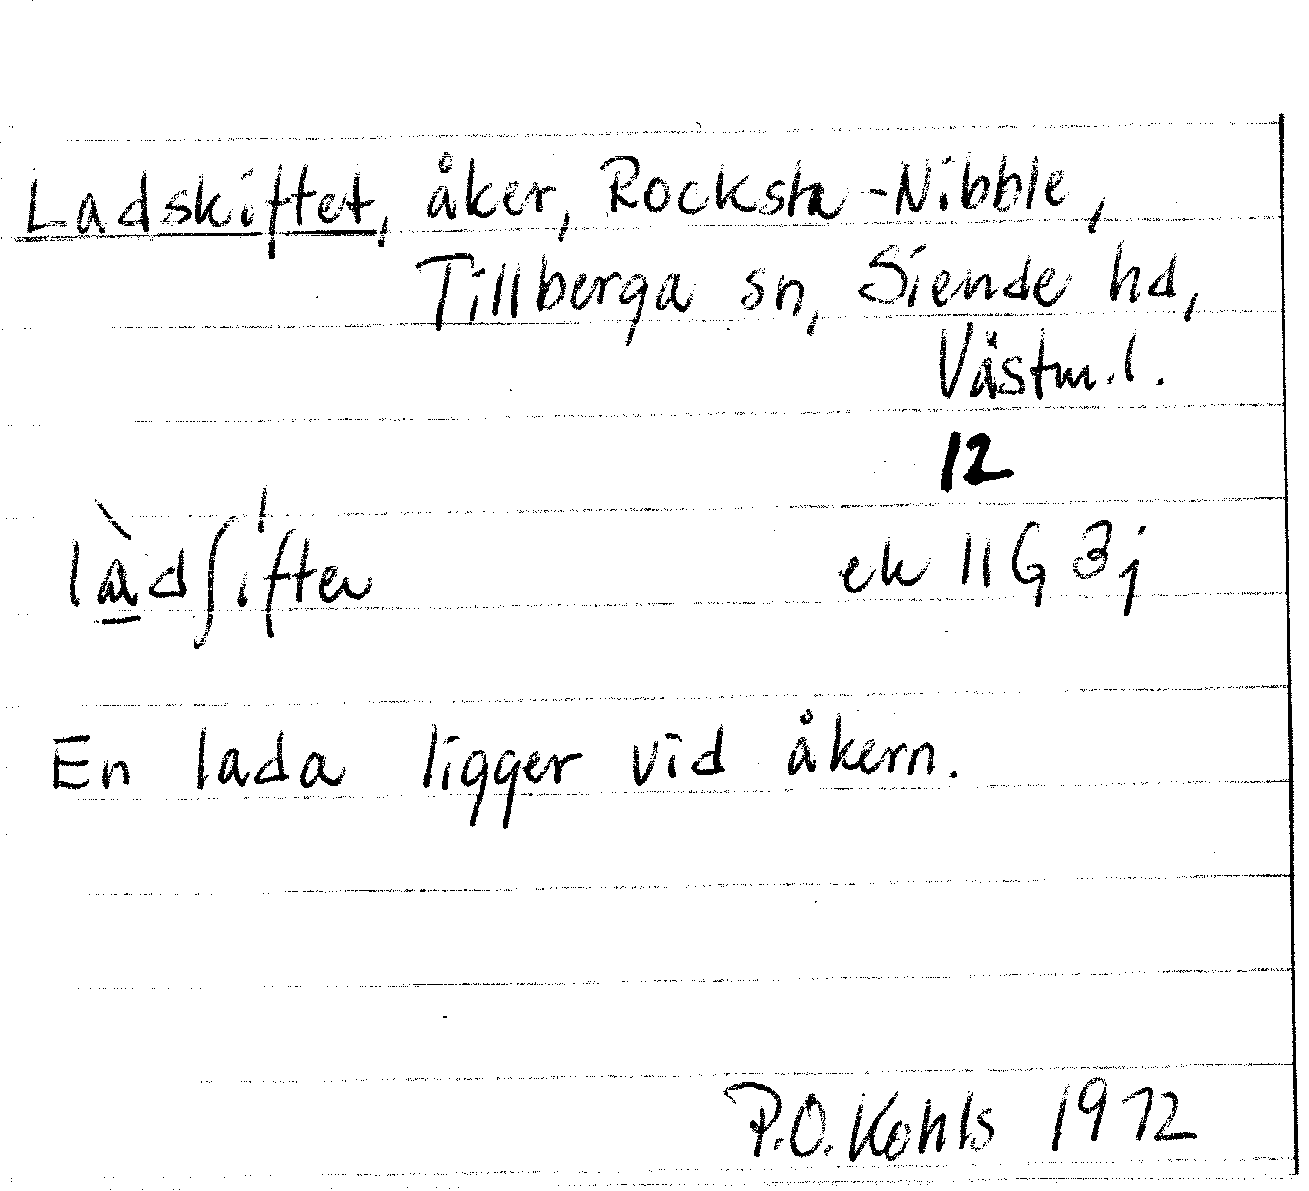 Ladskiftet, åker, Rocksta-Nibble,
Tillberga sn, Siende hd,
Västm. l.
12
là̱dʃˈiften ek 11G 3j
En lada ligger vid åkern.
P.O. Kohls 1972